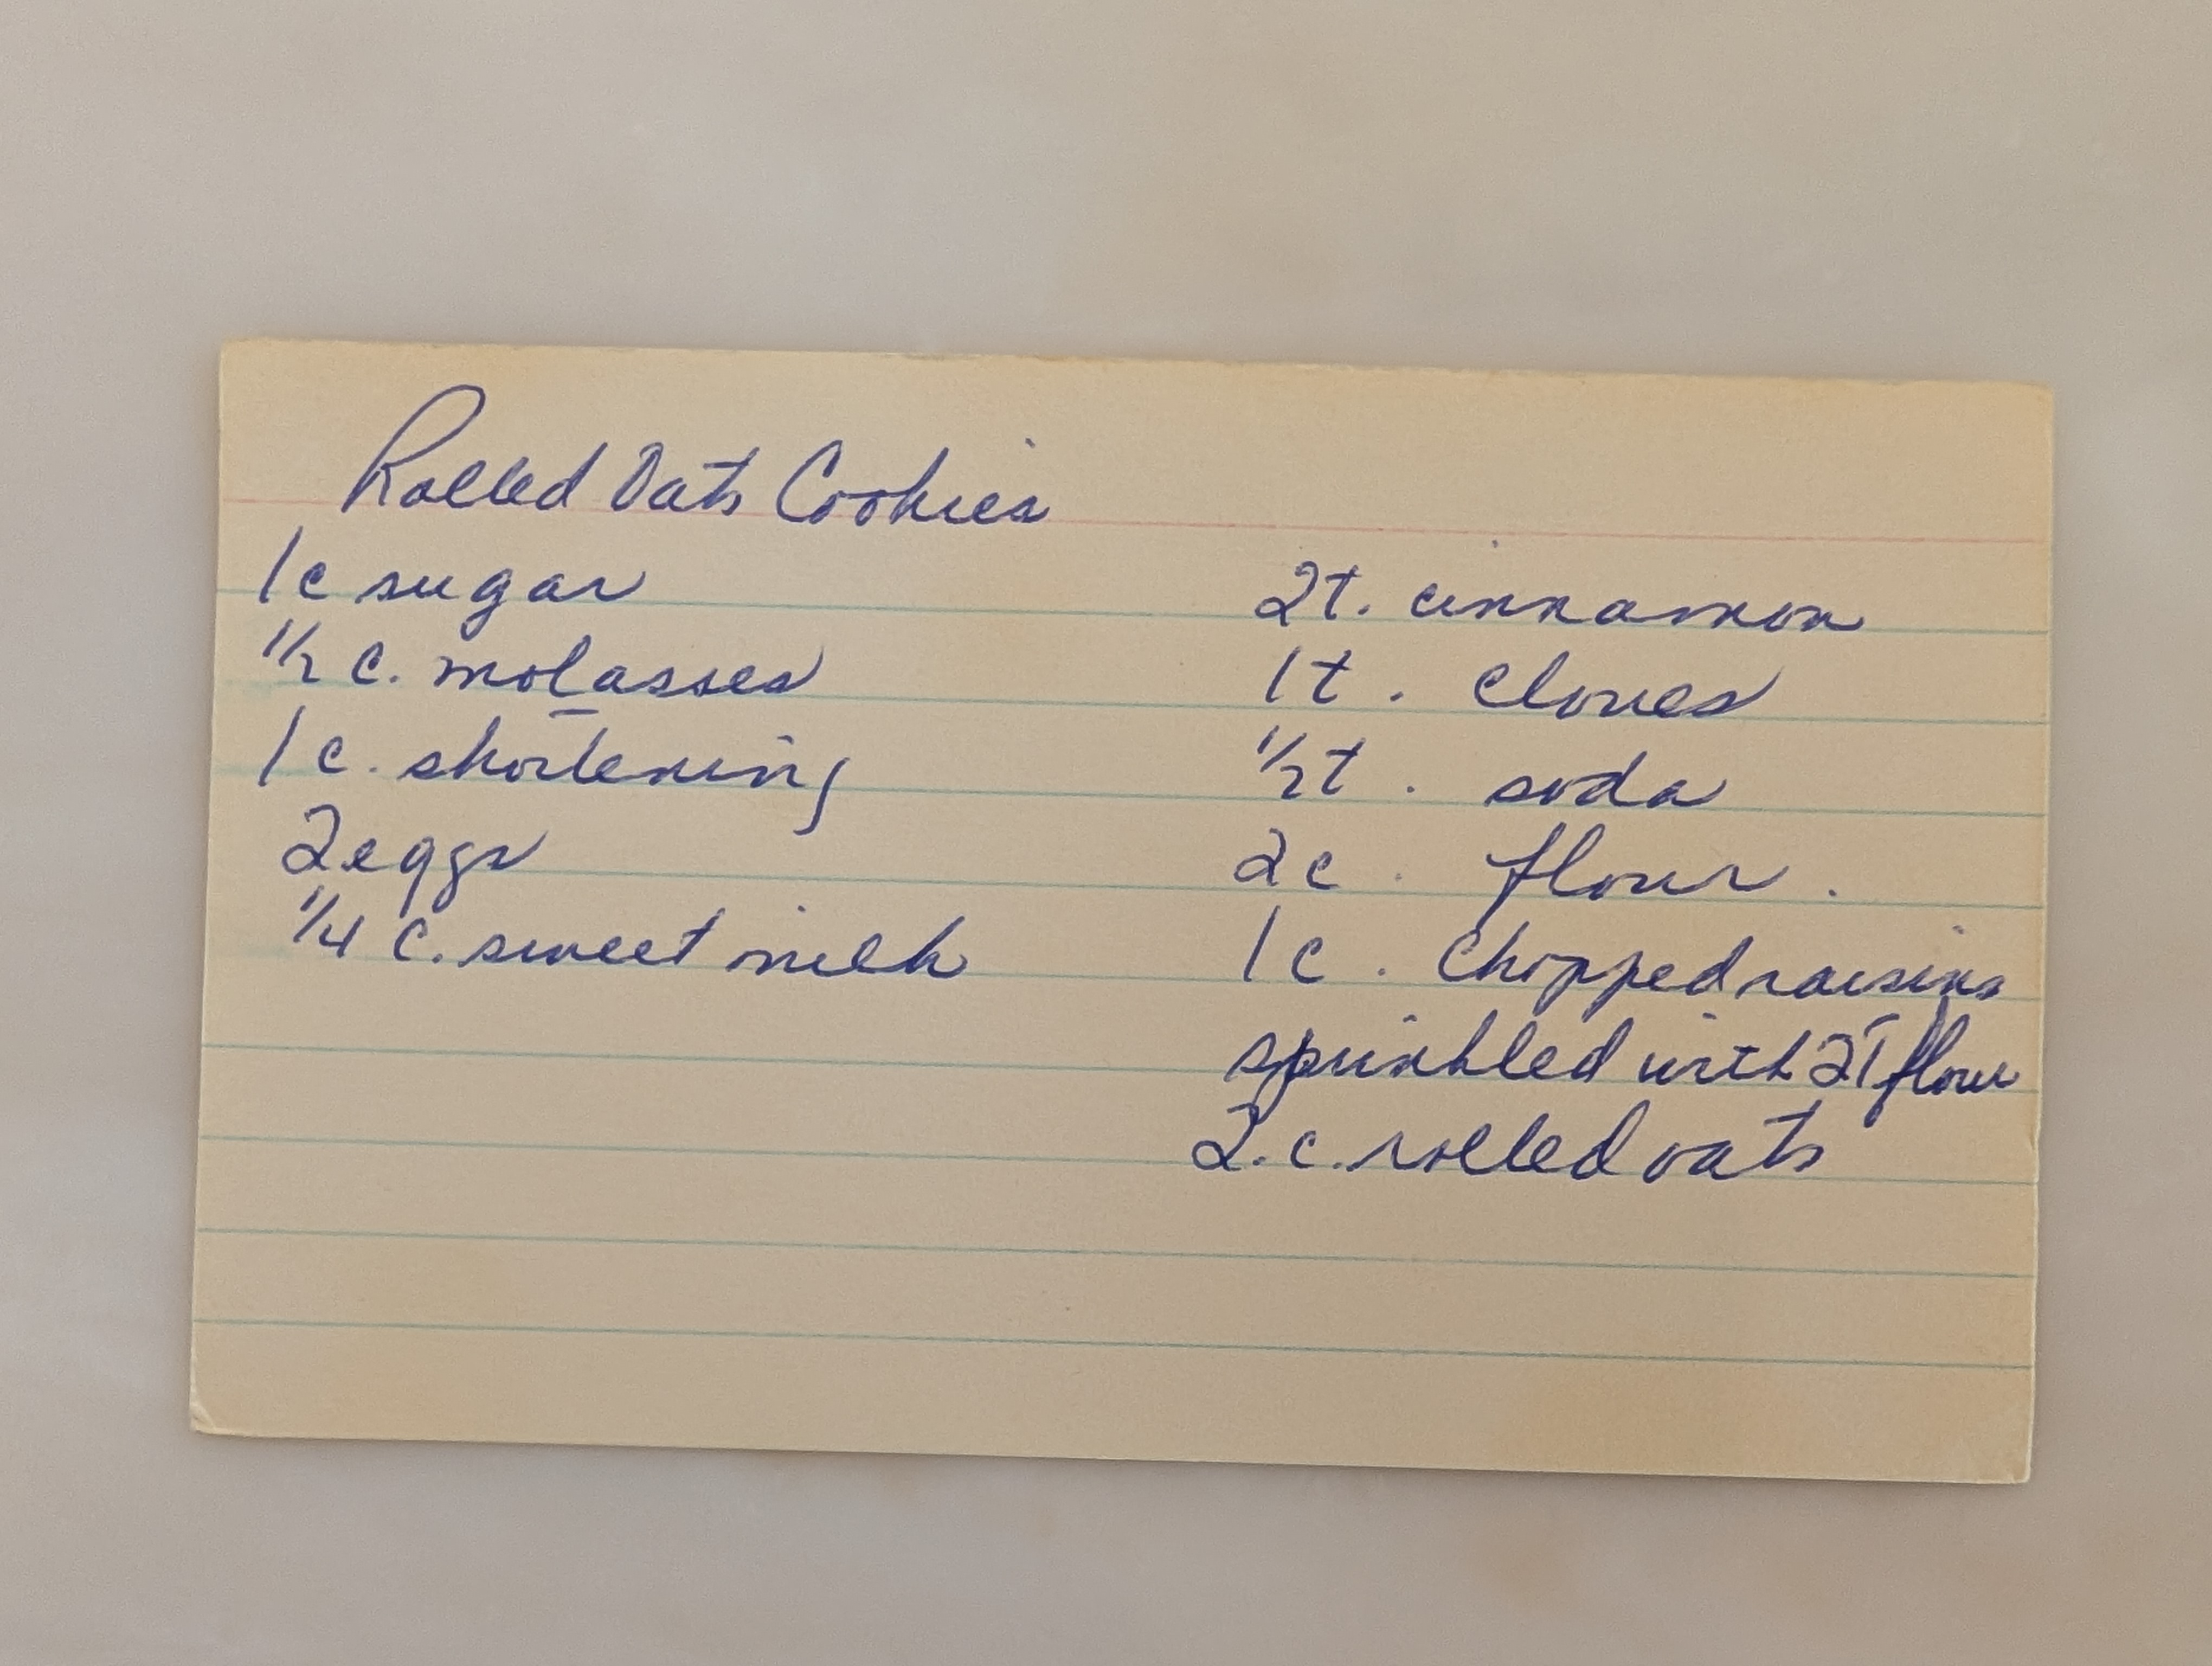 Rolled Oats Cookies
1c sugar
1/2 c. molasses
1 c. shortening
2 eggs
1/4 c. sweet milk
2t. cinnamon
1t. cloves
1/2t. soda
2c. flour.
1c. Chopped raisins
sprinkled with 2T flour
2.c. rolled oats